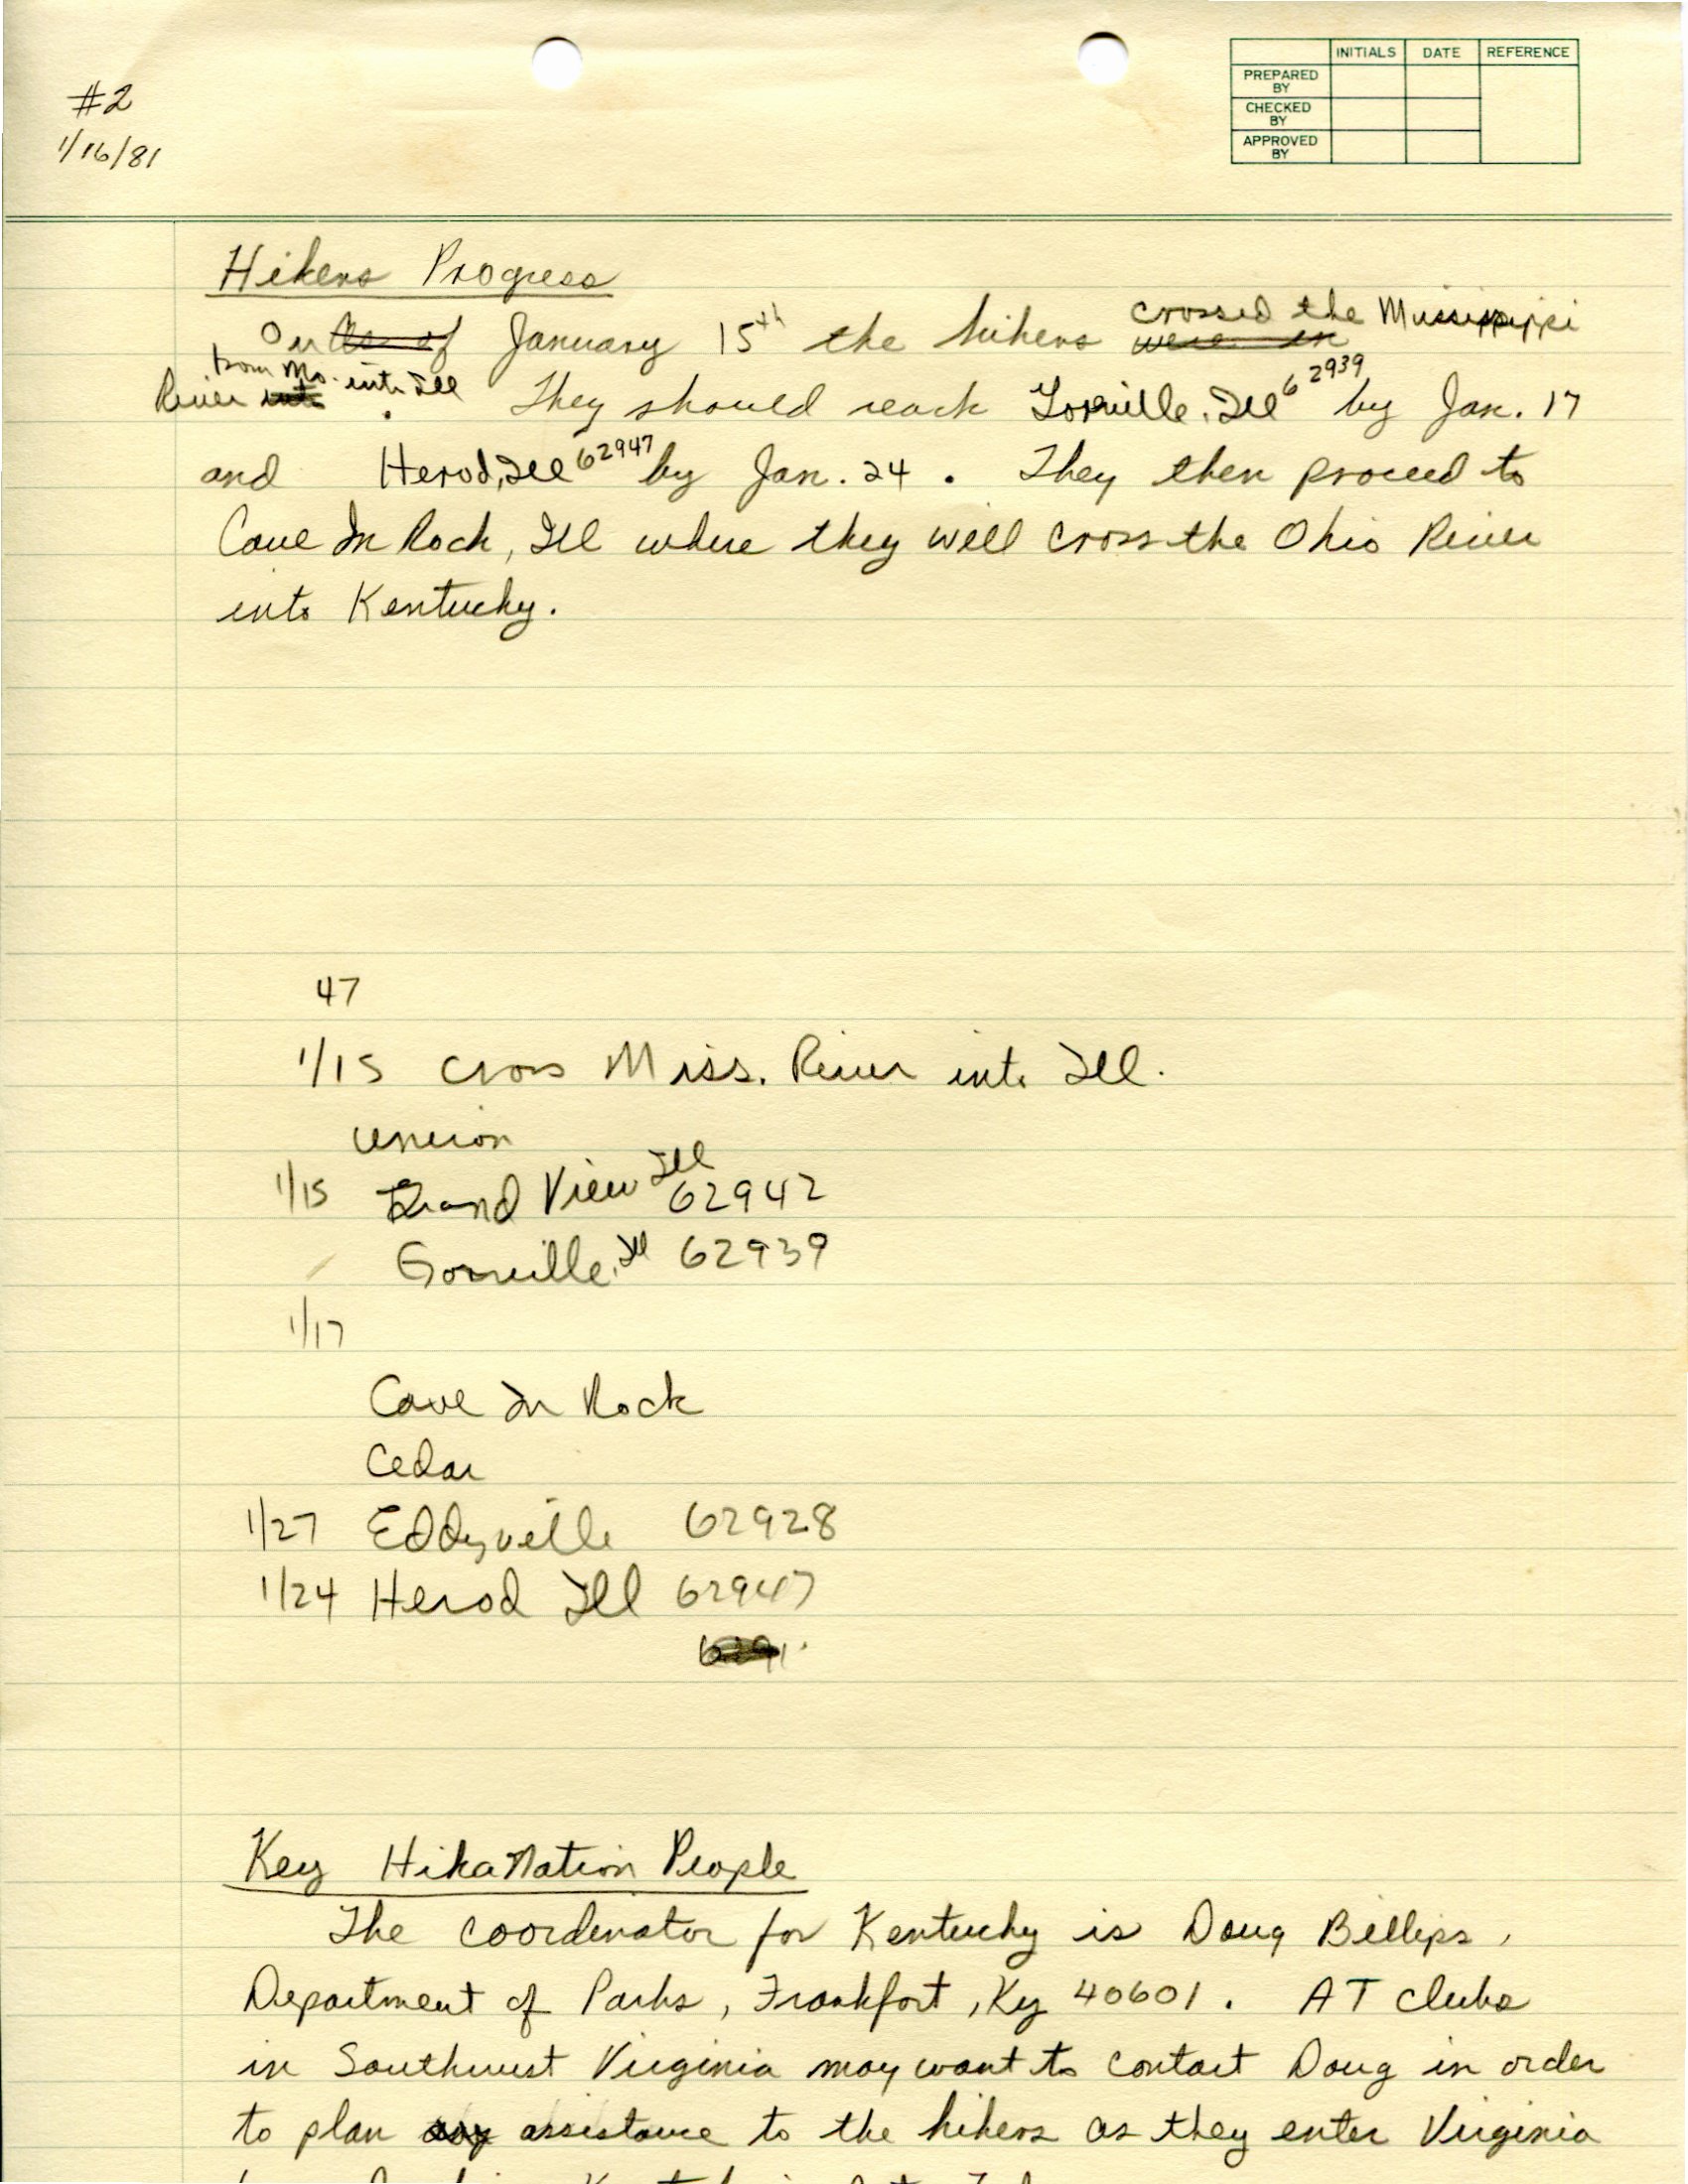 #2
1/16/81
INITIALS DATE REFERENCE
PREPARED BY
CHECKED BY
APPROVED BY
Hikers Progress
On As of January 15th the hikers were in crossed the Mississippi
River into from Mo. into Ill. They should reach Goreville, Ill 62939 by Jan. 17
and Herod, Ill 62947 by Jan. 24. They then proceed to
Cave In Rock, Ill where they will cross the Ohio River
into Kentucky.
47
1/15 cross Miss. River into Ill.
Union
1/15 Grand View Ill 62942
Goreville, Ill 62939
1/17
Cave In Rock
Cedar
1/27 Eddyville 62928
1/24 Herod Ill 62947
Key HikaNation People
The coordinator for Kentucky is Doug Billips,
Department of Parks, Frankfort, Ky 40601. AT clubs
in Southwest Virginia may want to contact Doug in order
to plan any assistance to the hikers as they enter Virginia